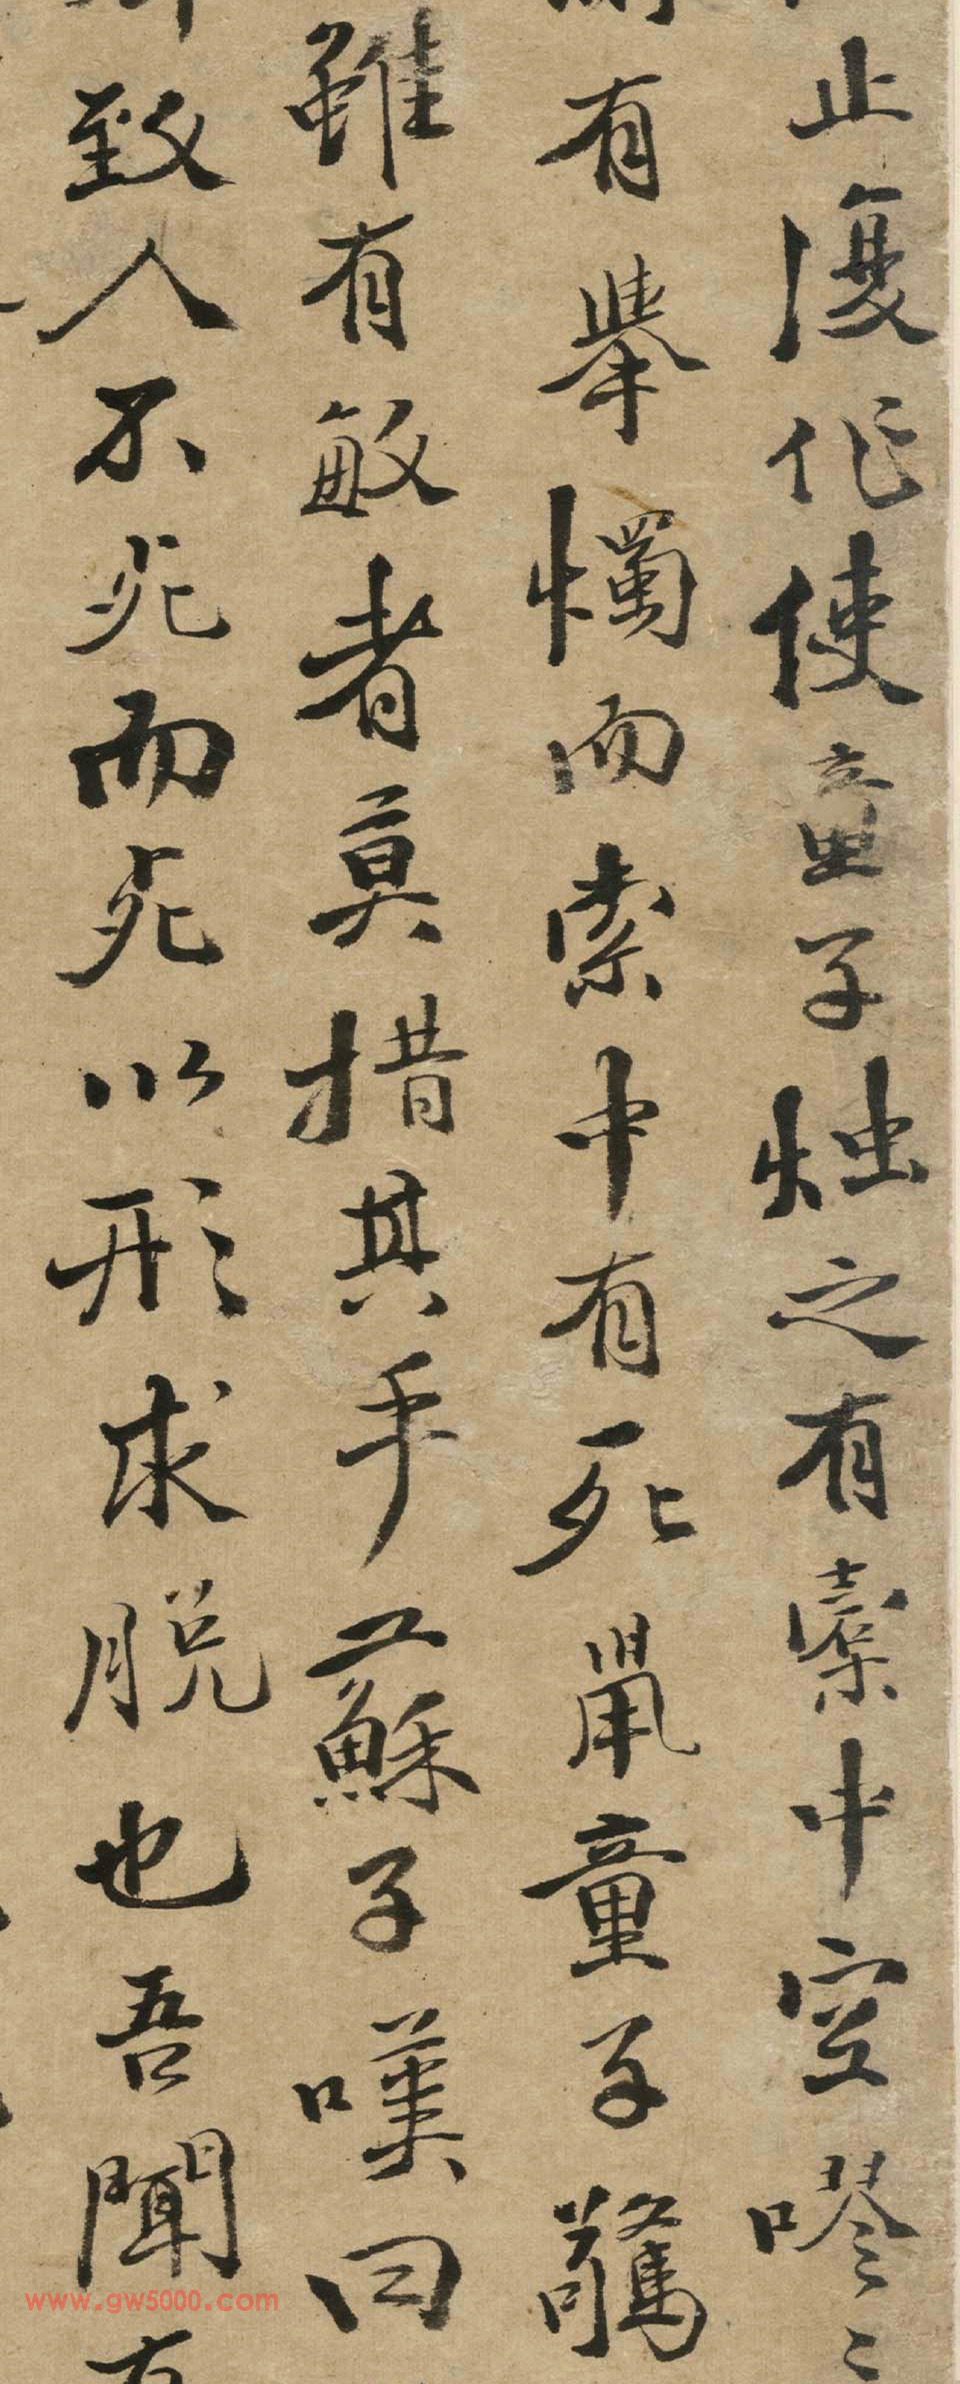 止復作使童子燭之有橐中空嘐〻
有舉燭而索中有死鼠童子驚
雖有敏者莫措其手蘇子嘆曰
致人不死而死以形求脫也吾聞有
www.gw5000.com